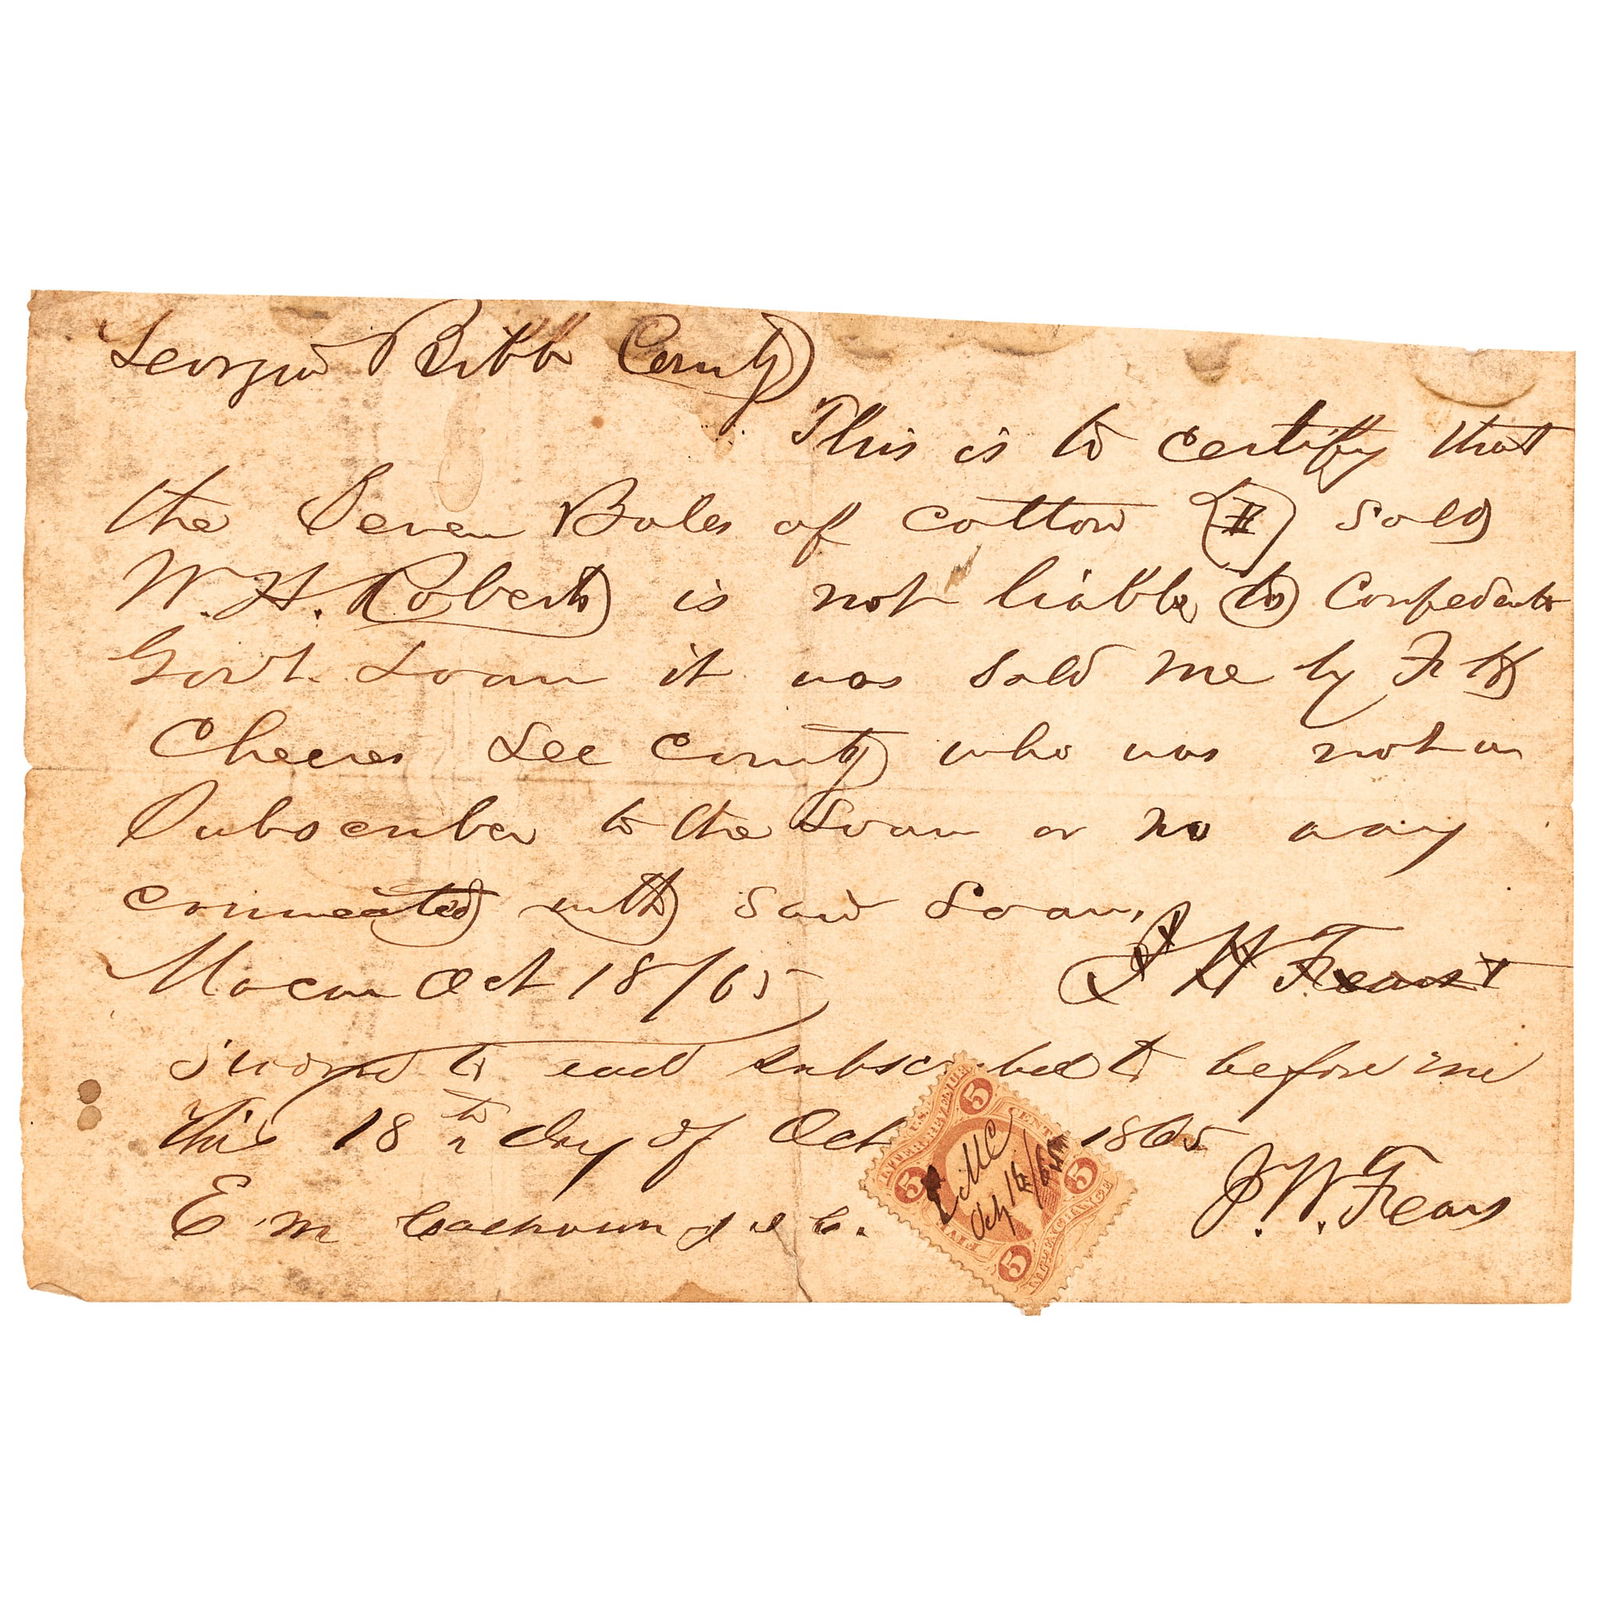 Georgia Bibb County
This is to certify that
the Seven Bales of cotton I sold
W. H. Roberts is not liable to Confederate
Govt. Loan it was sold me by
Cheeves Lee County who was not a
Subscriber to the Loan or no way
connected with said Loan.
Macon Oct 18/65
Sworn to and subscribed to before me
this 18th day of Oct 1865
E M Calhoun J. W. Fears
U.S. INTER. REVENUE
FIVE CENTS
INTER. EXCHANGE
5 5 5 5
EMC
Oct 18/65